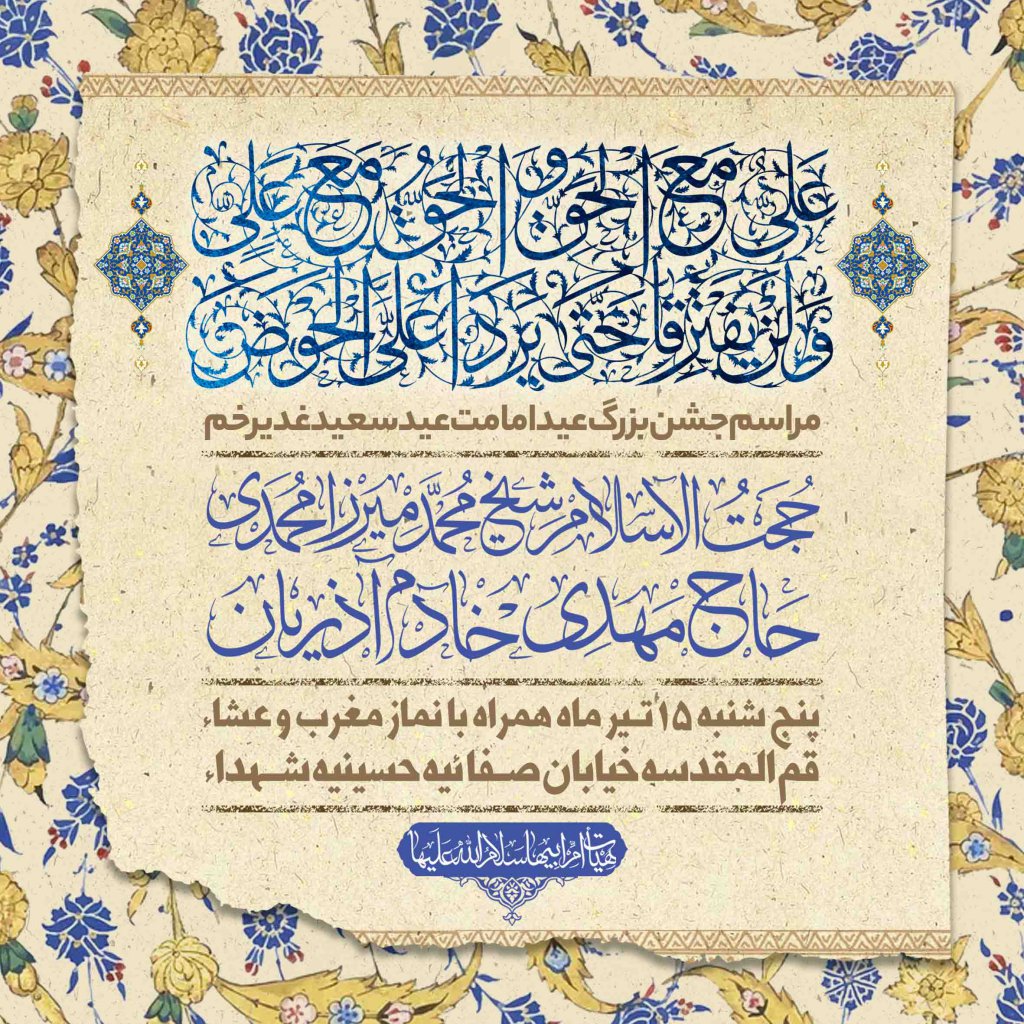 عَلِیٌّ مَعَ الحَقِّ وَ الحَقُّ مَعَ عَلِیٍّ
وَ لَن یَفتَرِقا حَتّی یَرِدا عَلَیَّ الحَوضَ
مراسم جشن بزرگ عید امامت عید سعید غدیر خم
حُجَتُ الاسلام شیخ مُحمَّد میرزا مُحمَدی
حاج مَهدِی خادم آذریان
پنج شنبه ۱۵ تیر ماه همراه با نماز مغرب و عشاء
قم المقدسه خیابان صفائیه حسینیه شهداء
هیات ام ابیها سلام الله علیها